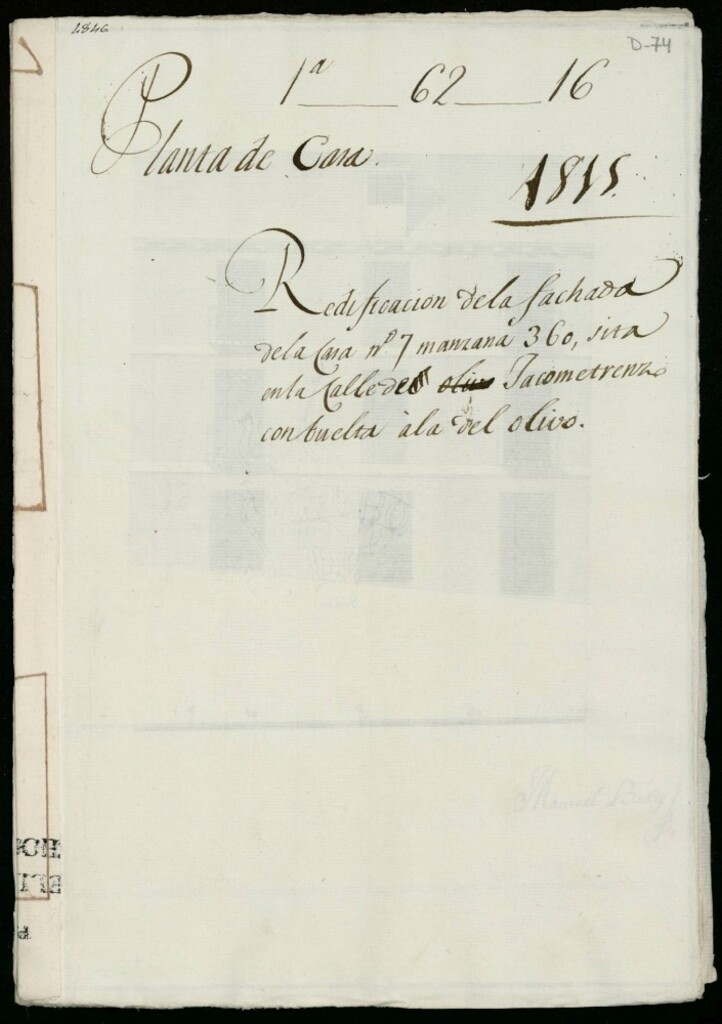 1846
D-74
1ª 62 16
Planta de Casa.
1815.
Redificacion dela fachada
dela Casa nº 7 manzana 360, sita
enla Calle de olivo Jacometrenzo
conbuelta àla del olivo.
Manuel